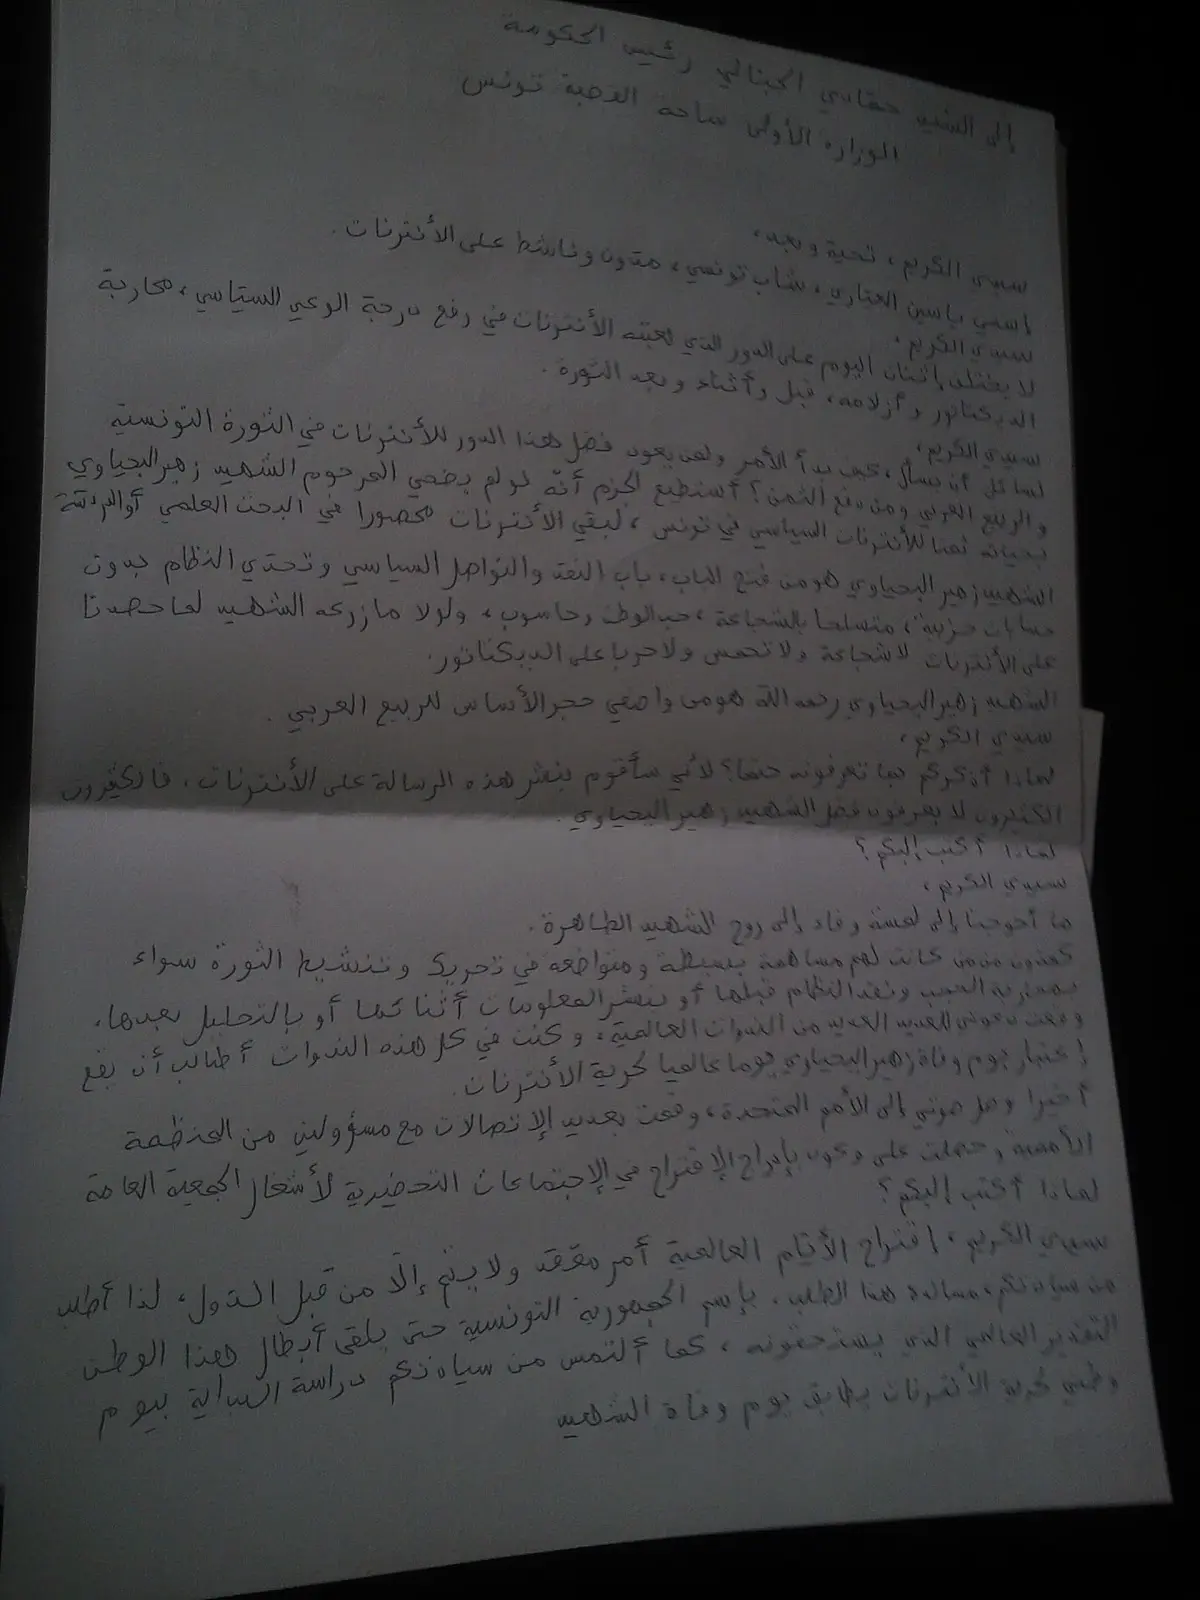 إلى السيد حمادي الجبالي رئيس الحكومة
الوزارة الأولى ساحة القصبة تونس
سيدي الكريم، تحية وبعد،
إسمي ياسين العياري، شاب تونسي، مدون وناشط على الأنترنات.
سيدي الكريم،
لا يختلف إثنان اليوم على الدور الذي لعبته الأنترنات في رفع درجة الوعي السياسي، محاربة
الديكتاتور وأزلامه، قبل وأثناء وبعد الثورة.
سيدي الكريم،
لسائل أن يسأل، كيف بدأ الأمر ولمن يعود فضل هذا الدور للأنترنات في الثورة التونسية
والربيع العربي ومن دفع الثمن؟ أستطيع الجزم أنّه لو لم يضحي المرحوم الشهيد زهير اليحياوي
بحياته ثمنا للأنترنات السياسي في تونس، لبقي الأنترنات محصورا في البحث العلمي أو الدردشة
الشهيد زهير اليحياوي هو من فتح الباب، باب النقد والتواصل السياسي وتحدي النظام بدون
حسابات حزبية، متسلحا بالشجاعة، حب الوطن وحاسوب، ولولا ما زرعه الشهيد لما حصدنا
على الأنترنات لا شجاعة ولا تحمس ولا حربا على الديكتاتور.
الشهيد زهير اليحياوي رحمه الله هو من واضعي حجر الأساس للربيع العربي.
سيدي الكريم،
لماذا أذكركم بما تعرفونه حتما؟ لأني سأقوم بنشر هذه الرسالة على الأنترنات، فالكثيرون
الكثيرون لا يعرفون فضل الشهيد زهير اليحياوي.
لماذا أكتب إليكم؟
سيدي الكريم،
ما أحوجنا إلى لمسة وفاء إلى روح الشهيد الطاهرة.
كمدون ممن كانت لهم مساهمة بسيطة ومتواضعة في تحريك وتنشيط الثورة سواء
بمحاربة الحجب ونقد النظام قبلها أو بنشر المعلومات أثنائها أو بالتحليل بعدها،
وقعت دعوتي للعديد العديد من الندوات العالمية، وكنت في كل هذه الندوات أطالب أن يقع
إعتبار يوم وفاة زهير اليحياوي يوما عالميا لحرية الأنترنات.
أخيرا وصل صوتي إلى الأمم المتحدة، وقمت بعديد الإتصالات مع مسؤولين من المنظمة
الأممية وحصلت على وعود بإدراج الإقتراح في الإجتماعات التحضيرية لأشغال الجمعية العامة
لماذا أكتب إليكم؟
سيدي الكريم، إقتراح الأيام العالمية أمر معقد ولا يتم إلّا من قبل الدول، لذا أطلب
من سيادتكم، مساندة هذا الطلب، بإسم الجمهورية التونسية حتى يلقى أبطال هذا الوطن
التقدير العالمي الذي يستحقونه، كما ألتمس من سيادتكم دراسة البداية بيوم
وطني لحرية الأنترنات يطابق يوم وفاة الشهيد